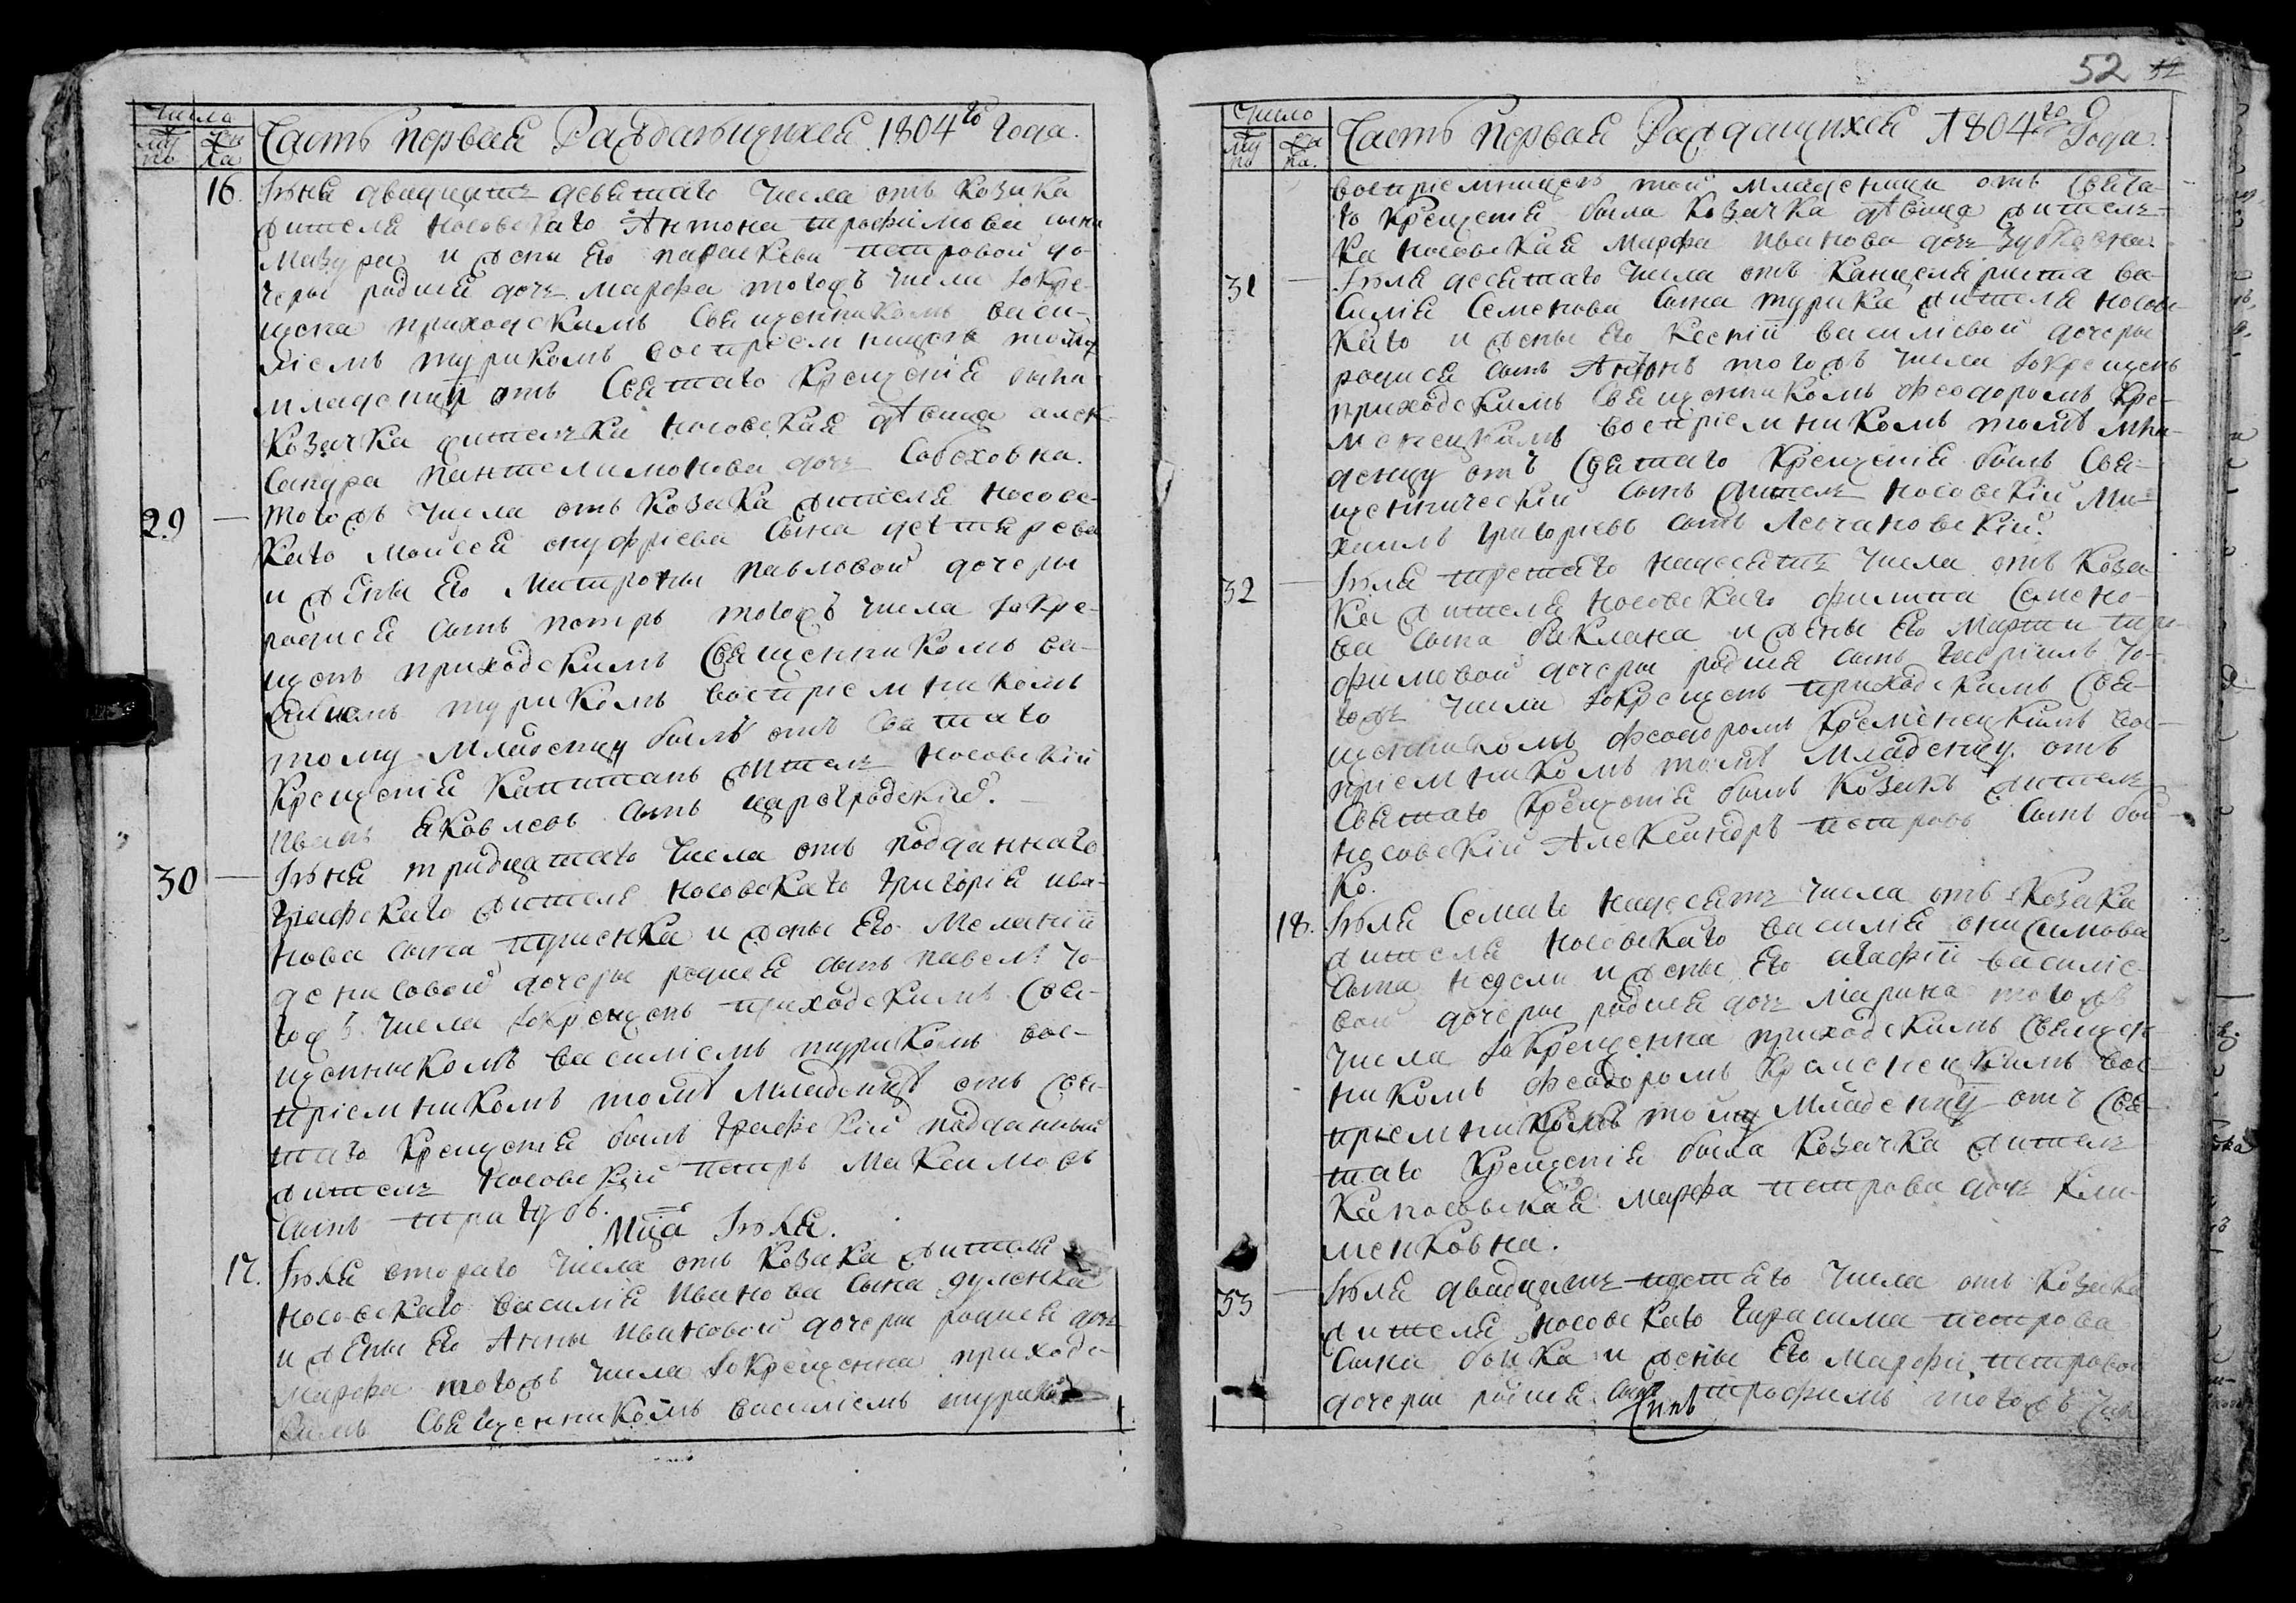 Число
Му по
Же ка
Часть первая Раждающихся 1804го Года.
16. Іюня двадцать девятаго числа отъ козака
жителя носовскаго Антона трофимова сина
Мазура и жени Его параскеви петровой до-
черы родися дочь Марфа тогожъ числа Зокре-
щена приходскимъ Священникомъ васи-
ліемъ туриномъ воспріемницею тойжъ
младеници отъ Святаго Крещенія была
козачка жителка носовская дѣвица алек-
сандра пантелимонова дочь
29 Тогожъ числа отъ козака жителя носовс-
каго Мойсея онуфріева Сына
и жены Его Митроны павловой дочеры
родися Сынъ потръ тогожъ числа Зокре-
щенъ приходскимъ Священникомъ ва-
силиемъ туриномъ воспріемникомъ
тому младенцу былъ отъ Святаго
Крещенія Капитанъ житель носовскій
иванъ яковлевъ Сынъ цароградскій.
30 Іюня тридцатаго числа отъ подданнаго
графскаго жителя носовскаго григорія ива-
нова Сына и жены Его Меланіи
денисовой дочеры родися Сынъ павелъ то-
гожъ числа Зокрещенъ приходскимъ Свя-
щенныкомъ василіемъ туриномъ вос-
пріемникомъ томѹ младенцѹ отъ Свя-
таго Крещенія былъ графскій подданный
житель носовскій петръ Максимовъ
Сынъ
Мца Іюля.
17. Іюля втораго числа отъ козака жителя
носовскаго василія иванова Сына дуленка
и жены Его Анны ивановой дочеры родися дочь
Марфа тогожъ числа Зокрещенна приходс-
кимъ Священникомъ василіемъ
52
Число
Му по
Же ка.
Часть первая Раждающихся 1804го Года.
воспріемницею той младеници отъ Свята-
го Крещенія была козачка дѣвица жител-
ка носовская Марфа иванова дочь
31 Іюля десятаго числа отъ канцеляриста ва-
силія Семенова Сына турина жителя носовс-
каго и жены Его Ксеніи василіевой дочеры
родися Сынъ Антонъ тогожъ числа Зокрещенъ
приходскимъ Священникомъ феодоромъ Кре-
менецкимъ воспріемникомъ томѹ мла-
денцу отъ Святаго Крещенія былъ Свя-
щеннический Сынъ житель носовскій Ми-
хаилъ григорьевъ Сынъ
32 Іюля третяго надесять числа отъ коза-
ка жителя носовскаго филипа Семено-
ва Сына баклана и жены Его Марти тро-
фимовой дочеры родися Сынъ гавріилъ то-
гожъ числа Зокрещенъ приходскимъ Свя-
щенникомъ феодоромъ Кременецкимъ вос-
пріемникомъ томѹ младенцу отъ
Святаго Крещенія былъ козакъ житель
носовскій Александръ петровъ Сынъ бой-
ко.
18. Іюля Семаго надесять числа отъ козака
жителя носовскаго василія онисимова
Сына недели и жены Его агафіи василіе-
вой дочеры родися дочь Марина тогожъ
числа Зокрещенна приходскимъ Священ-
никомъ феодоромъ Кременецкимъ вос-
пріемникомъ тойжъ младеницу отъ Свя-
таго Крещенія была козачка жител-
ка носовская Марфа петрова дочь Кли-
менковна.
33 Іюля двадцать шестаго числа отъ козака
жителя носовскаго гарасима петрова
Сына бойка и жены Его Марфи петровой
дочеры родися Сынъ трофимъ тогожъ чи-